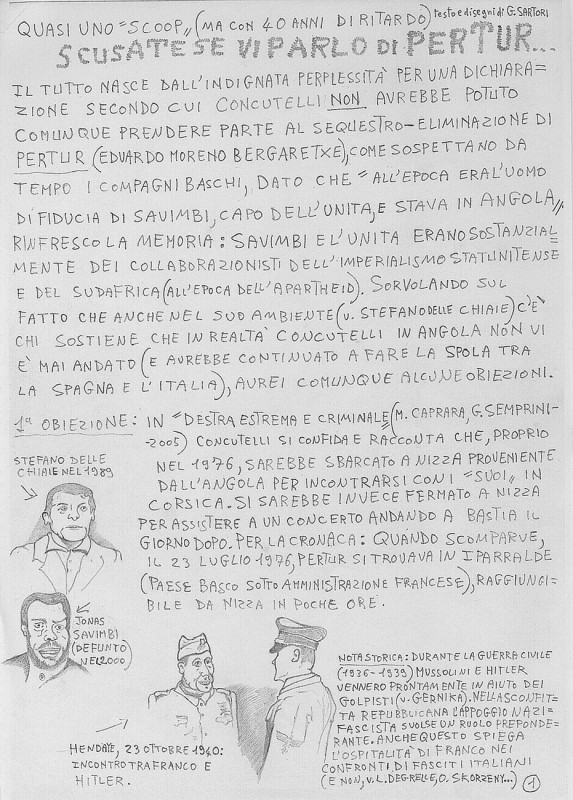 QUASI UNO "SCOOP" (MA CON 40 ANNI DI RITARDO) testo e disegni di G. SARTORI
SCUSATE SE VI PARLO DI PERTUR...
IL TUTTO NASCE DALL'INDIGNATA PERPLESSITÀ PER UNA DICHIARA=
ZIONE SECONDO CUI CONCUTELLI NON AVREBBE POTUTO
COMUNQUE PRENDERE PARTE AL SEQUESTRO-ELIMINAZIONE DI
PERTUR (EDUARDO MORENO BERGARETXE), COME SOSPETTANO DA
TEMPO I COMPAGNI BASCHI, DATO CHE "ALL'EPOCA ERA L'UOMO
DI FIDUCIA DI SAVIMBI, CAPO DELL'UNITA, E STAVA IN ANGOLA".
RINFRESCO LA MEMORIA: SAVIMBI E L'UNITA ERANO SOSTANZIAL=
MENTE DEI COLLABORAZIONISTI DELL'IMPERIALISMO STATUNITENSE
E DEL SUDAFRICA (ALL'EPOCA DELL'APARTHEID). SORVOLANDO SUL
FATTO CHE ANCHE NEL SUO AMBIENTE (v. STEFANO DELLE CHIAIE) C'È
CHI SOSTIENE CHE IN REALTÀ CONCUTELLI IN ANGOLA NON VI
È MAI ANDATO (E AVREBBE CONTINUATO A FARE LA SPOLA TRA
LA SPAGNA E L'ITALIA), AVREI COMUNQUE ALCUNE OBIEZIONI.
1ª OBIEZIONE: IN "DESTRA ESTREMA E CRIMINALE" (M. CAPRARA, G. SEMPRINI-
-2005) CONCUTELLI SI CONFIDA E RACCONTA CHE, PROPRIO
NEL 1976, SAREBBE SBARCATO A NIZZA PROVENIENTE
DALL'ANGOLA PER INCONTRARSI CON I "SUOI" IN
CORSICA. SI SAREBBE INVECE FERMATO A NIZZA
PER ASSISTERE A UN CONCERTO ANDANDO A BASTIA IL
GIORNO DOPO. PER LA CRONACA: QUANDO SCOMPARVE,
IL 23 LUGLIO 1976, PERTUR SI TROVAVA IN IPARRALDE
(PAESE BASCO SOTTO AMMINISTRAZIONE FRANCESE), RAGGIUNGI=
BILE DA NIZZA IN POCHE ORE.
STEFANO DELLE
CHIAIE NEL 1989
JONAS
SAVIMBI
(DEFUNTO
NEL 2000)
HENDAYE, 23 OTTOBRE 1940:
INCONTRO TRA FRANCO E
HITLER.
NOTA STORICA: DURANTE LA GUERRA CIVILE
(1936-1939) MUSSOLINI E HITLER
VENNERO PRONTAMENTE IN AIUTO DEI
GOLPISTI (v. GERNIKA). NELLA SCONFIT=
TA REPUBBLICANA L'APPOGGIO NAZI=
FASCISTA SVOLSE UN RUOLO PREPONDE=
RANTE. ANCHE QUESTO SPIEGA
L'OSPITALITÀ DI FRANCO NEI
CONFRONTI DI FASCITI ITALIANI
(E NON, v. L. DEGRELLE, O. SKORZENY...) 1